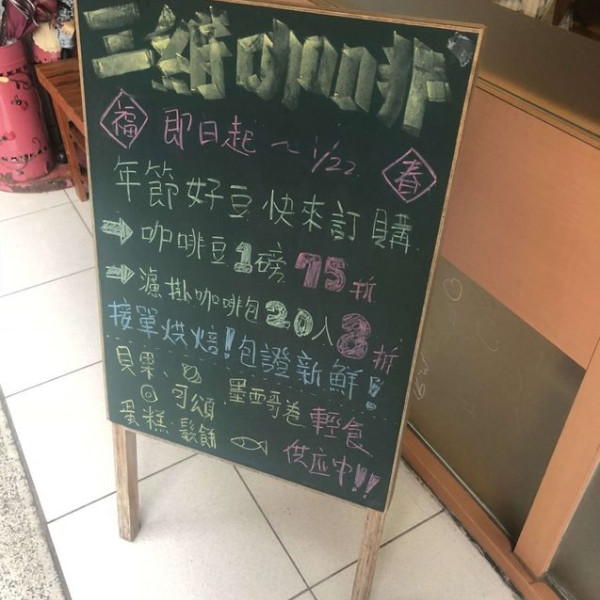 三維咖啡
福 即日起~1/22 春
年節好豆快來訂購
咖啡豆1磅75折
濾掛咖啡包20入8折
接單烘焙!包證新鮮!
貝果、可頌、墨西哥卷輕食
蛋糕、鬆餅 供应中!!